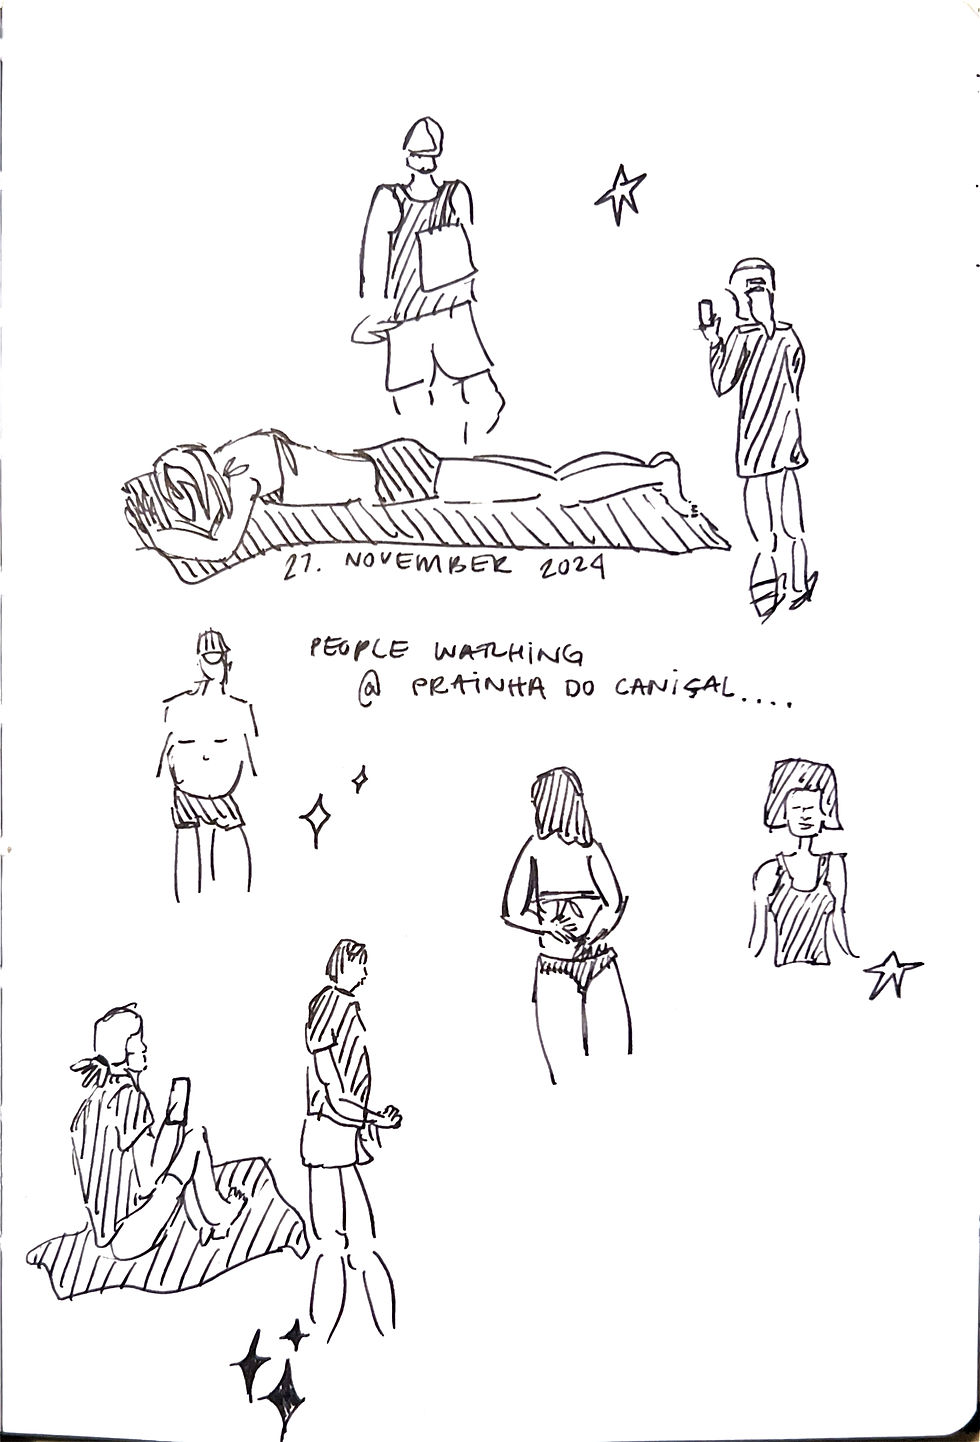 27. NOVEMBER 2024
PEOPLE WATCHING
@ PRAINHA DO CANIÇAL....